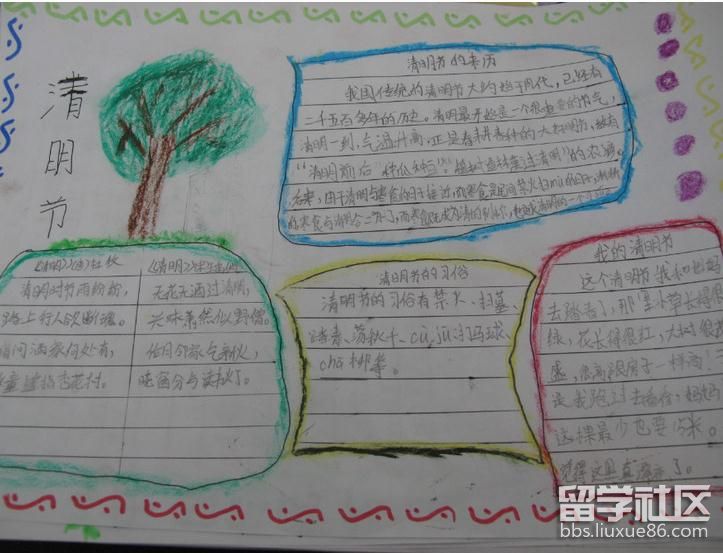 清明节
清明节的来历
我国传统的清明节大约始于周代，已经有
二千五百多年的历史。清明最开始是一个很重要的节气，
清明一到，气温升高，正是春耕春种的大好时节，故有
"清明前后 种瓜种豆"。植树造林莫过清明"的农谚。
后来，由于清明与寒食的日子接近，而寒食是民间禁火扫mù的日子，渐渐
的寒食与清明合二为了，而寒食
《清明》（唐）杜牧
清明时节雨纷纷，
路上行人欲断魂。
借问酒家何处有，
牧童遥指杏花村。
《清明》
无花无酒过清明，
兴味萧然似野僧。
昨日邻家乞新火，
晓窗分与读书灯。
清明节的习俗
清明节的习俗有禁火、扫墓、
踏青、荡秋千、cù jū 打马球、
chā柳等。
我的清明节
这个清明节我和妈妈
去踏青了，那里小草长得很
绿，花长得很红，大树很
盛，很高跟房子一样高！
是我跑过去看看，妈妈
这棵最少也要15米。
觉得这里真
留学社区
bbs.liuxue86.com